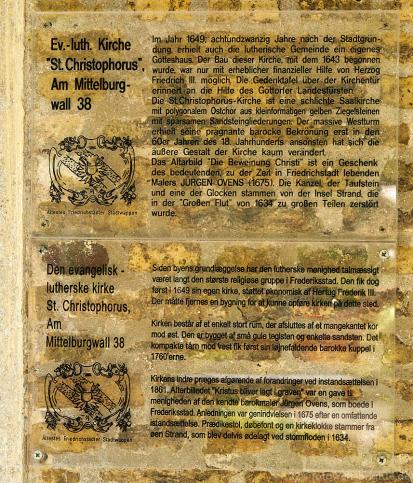 Ev.-luth. Kirche
"St. Christophorus",
Am Mittelburg-
wall 38
Ältestes Friedrichstädter Stadtwappen
Im Jahr 1649, achtundzwanzig Jahre nach der Stadtgrün-
dung, erhielt auch die lutherische Gemeinde ein eigenes
Gotteshaus. Der Bau dieser Kirche, mit dem 1643 begonnen
wurde, war nur mit erheblicher finanzieller Hilfe von Herzog
Friedrich III. möglich. Die Gedenktafel über der Kirchentür
erinnert an die Hilfe des Gottorfer Landesfürsten.
Die St. Christophorus-Kirche ist eine schlichte Saalkirche
mit polygonalem Ostchor aus kleinformatigen gelben Ziegelsteinen
mit sparsamen Sandsteingliederungen. Der massive Westturm
erhielt seine prägnante barocke Bekrönung erst in den
60er Jahren des 18. Jahrhunderts ansonsten hat sich die
äußere Gestalt der Kirche kaum verändert.
Das Altarbild "Die Beweinung Christi" ist ein Geschenk
des bedeutenden, zu der Zeit in Friedrichstadt lebenden
Malers JÜRGEN OVENS (1675). Die Kanzel, der Taufstein
und eine der Glocken stammen von der Insel Strand, die
in der "Großen Flut" von 1634 zu großen Teilen zerstört
wurde.
Den evangelisk -
lutherske kirke
St. Christophorus,
Am
Mittelburgwall 38
Ältestes Friedrichstädter Stadtwappen
Siden byens grundlæggelse har den lutherske menighed talmæssigt
været langt den største religiøse gruppe i Frederiksstad. Den fik dog
først i 1649 sin egen kirke, støttet økonomisk af Hertug Frederik III.
Der måtte fjernes en bygning for at kunne opføre kirken på dette sted.
Kirken består af et enkelt stort rum, der afsluttes af et mangekantet kor
mod øst. Den er bygget af små gule teglsten og enkelte sandsten. Det
kompakte tårn mod vest fik først sin løjnefaldende barokke kuppel i
1760'erne.
Kirkens indre præges afgørende af forandringer ved istandsættelsen i
1861. Alterbilledet "Kristus bliver lagt i graven" var en gave til
menigheden af den kendte barokmaler Jürgen Ovens, som boede i
Frederiksstad. Anledningen var genindvielsen i 1675 efter en omfattende
istandsættelse. Prædikestol, døbefont og en kirkeklokke stammer fra
øen Strand, som blev delvis ødelagt ved stormfloden i 1634.